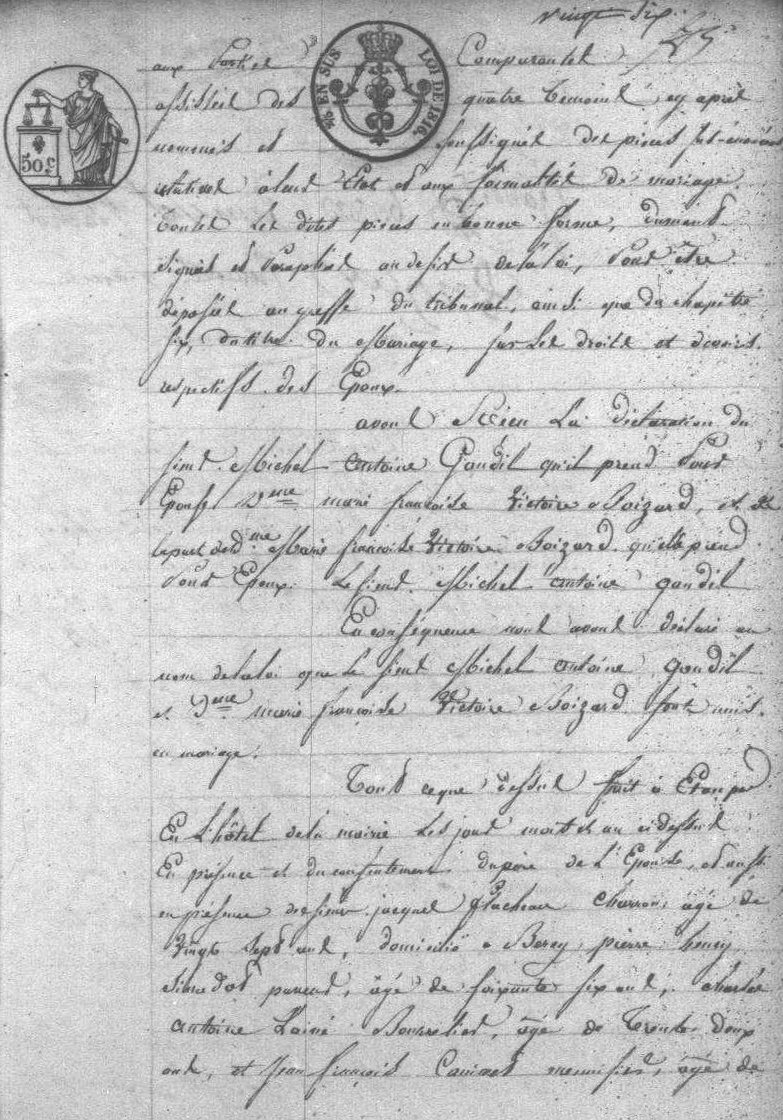 vingt six
25
50 c
¼ EN SUS LOI DE 1816
aux Parties Comparantes
assistées des quatre temoins cy après
nommés et soussignés des pieces sus énoncées
relatives à leur Etat et aux formalités de mariage
toutes les dites pieces en bonne forme, dument
signées et Paraphées au desir de la loi, Pour être
déposées au greffe du tribunal, ainsi que du chapitre
six, du titre du Mariage, sur les droits et devoirs
respectifs des Epoux.
avons Reçu La déclaration du
sieur Michel Antoine Gaudil qu'il prend Pour
Epouse D.me marie françoise Victoire Boizard, et de
la part de d.me Marie françoise Victoire Boizard qu'elle prend
Pour Epoux Le sieur Michel Antoine Gaudil
En conséquence nous avons déclaré au
nom de la loi que Le sieur Michel Antoine Gaudil
et D.me marie françoise Victoire Boizard sont unis
en mariage.
Tout ce que dessus fait à Etampes
En L'hôtel de la mairie Les jour mois et an ci dessus
En présence et du consentement du père de L'Epouse, et aussi
en présence des sieurs jacques Charron, âgé de
Vingt sept ans, domicilié à pierre henry
âgé de soixante six ans, charles
Antoine Lainé Bourrelier, âgé de Trente deux
ans, et Jean françois menuisier, âgé de